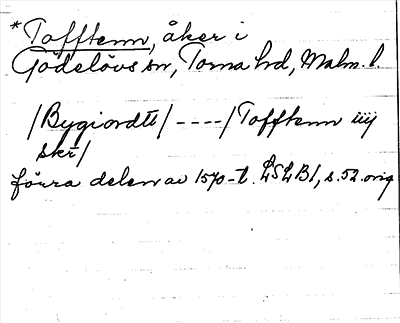 *Tofftenn, åker i
Gödelövs sn, Torna hrd, Malm. l.
/Bygiordtt/ ----/Tofftenn iiij
skr/
förra delen av 1570-t. LSLB1, s.52.orig